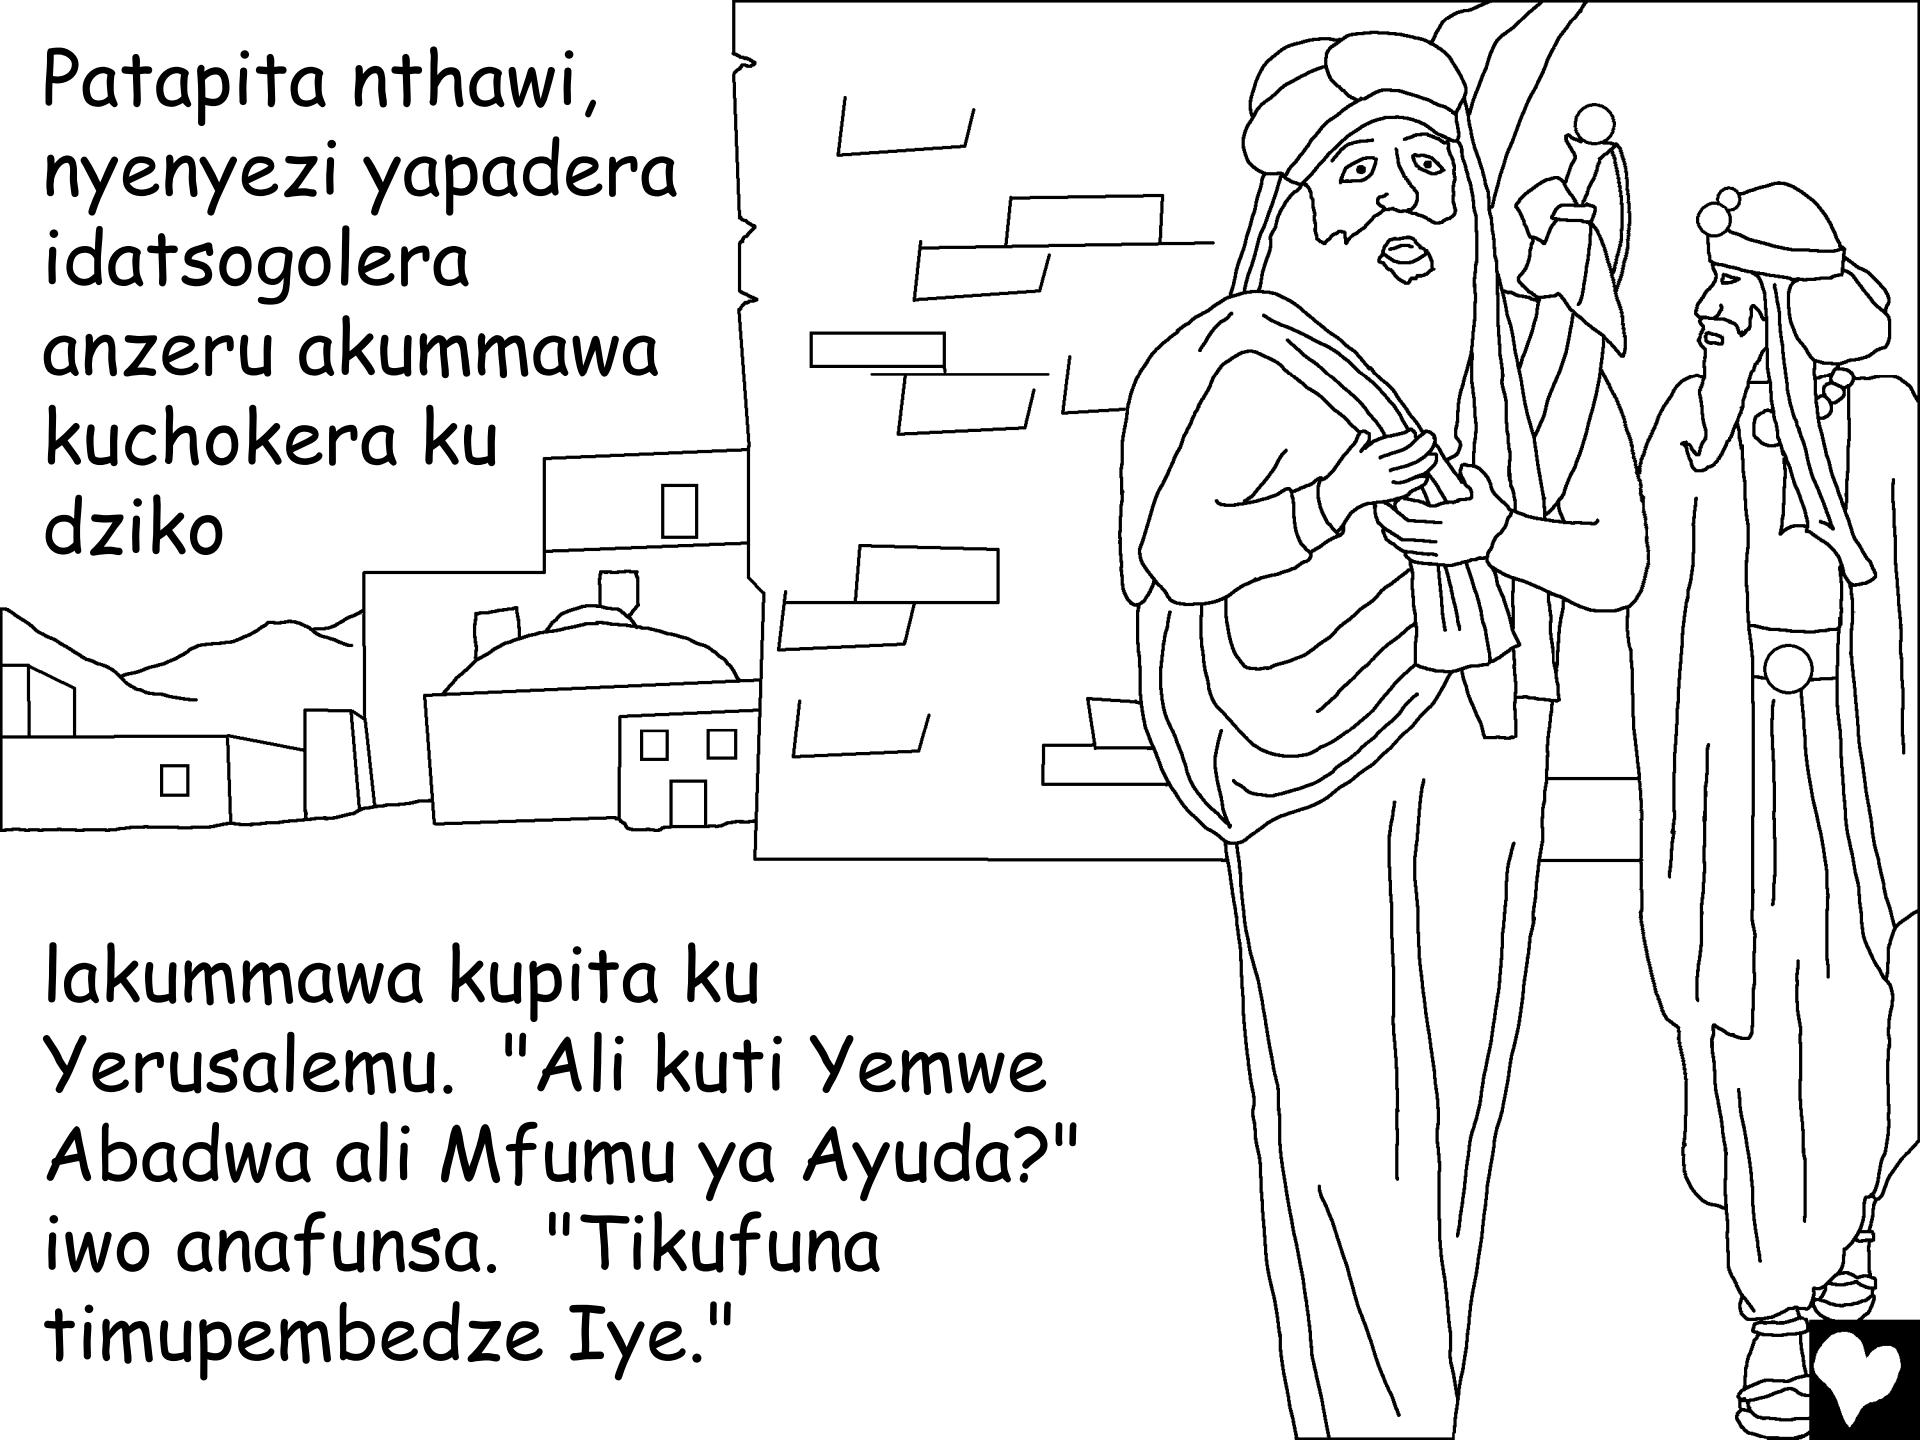 Patapita nthawi,
nyenyezi yapadera
idatsogolera
anzeru akummawa
kuchokera ku
dziko
lakummawa kupita ku
Yerusalemu.  "Ali kuti Yemwe
Abadwa ali Mfumu ya Ayuda?"
iwo anafunsa.  "Tikufuna
timupembedze Iye."